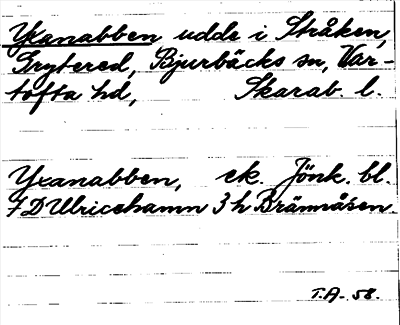 Yxanabben udde i Stråken,
Grytered, Bjurbäcks sn, Var-
tofta hd, Skarab. l.
Yxanabben, ek. Jönk. bl.
7 D Ulricehamn 3 h Brämåsen.
T.A. 58.